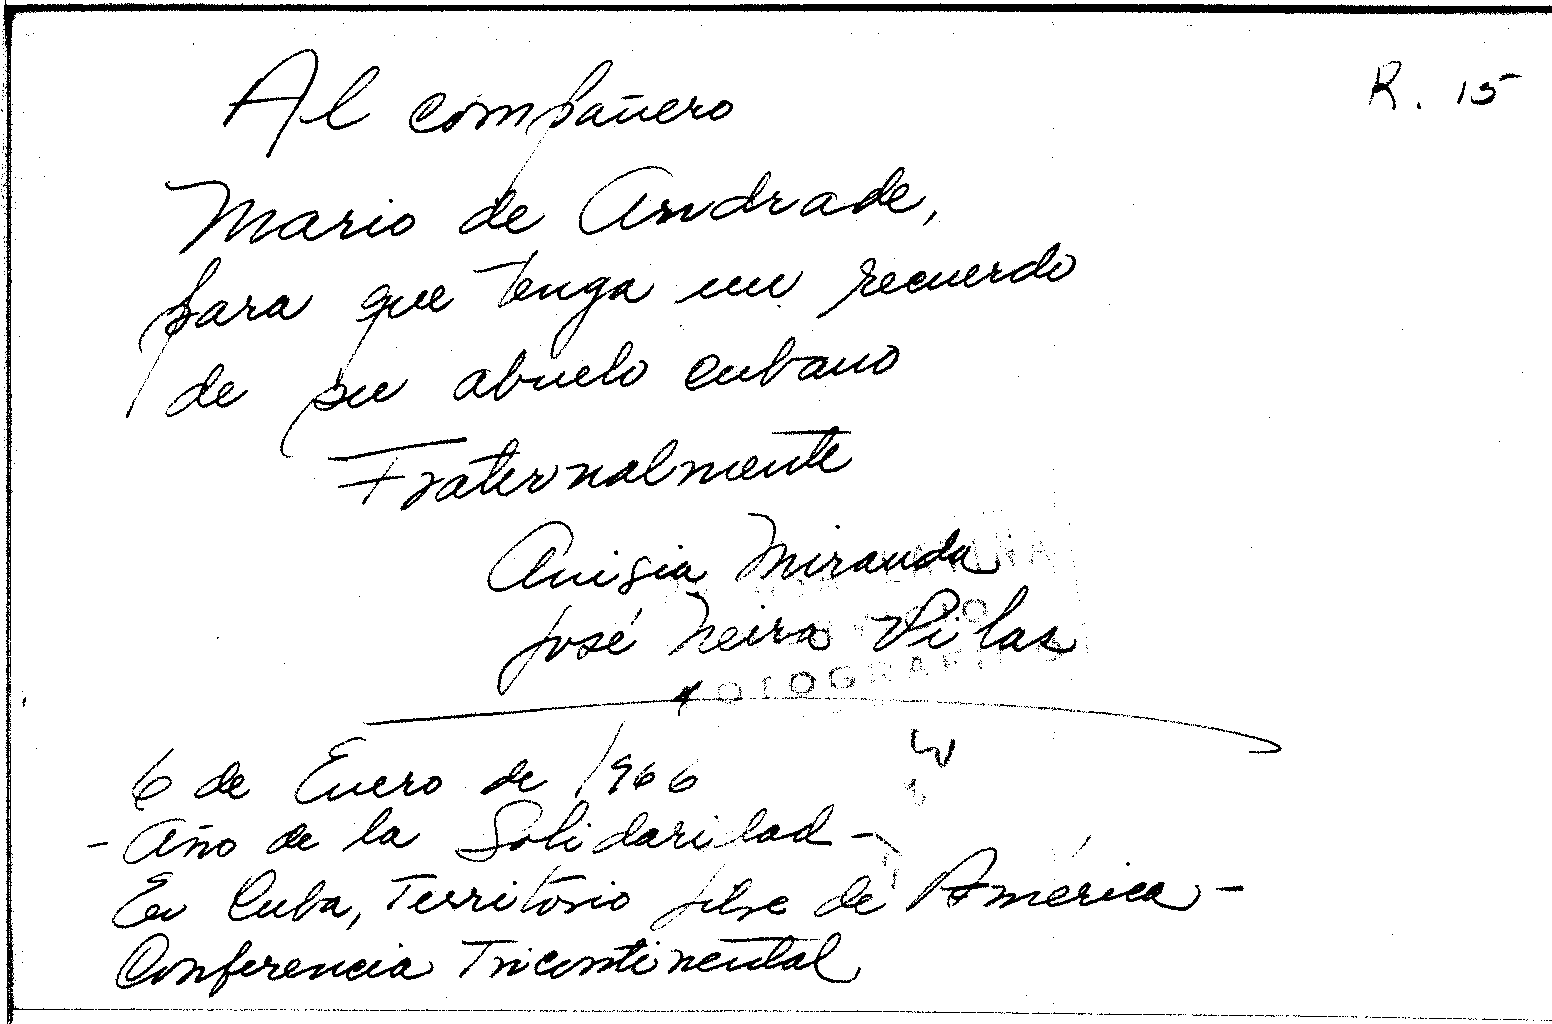 R. 15
Al compañero
Mario de Andrade,
para que tenga un recuerdo
de su abuelo cubano
Fraternalmente
Anisia Miranda
José Neira Vilas
FOTOGRAFI
6 de Enero de 1966
- Año de la Solidaridad -
En Cuba, Territorio libre de América -
Conferencia Tricontinental